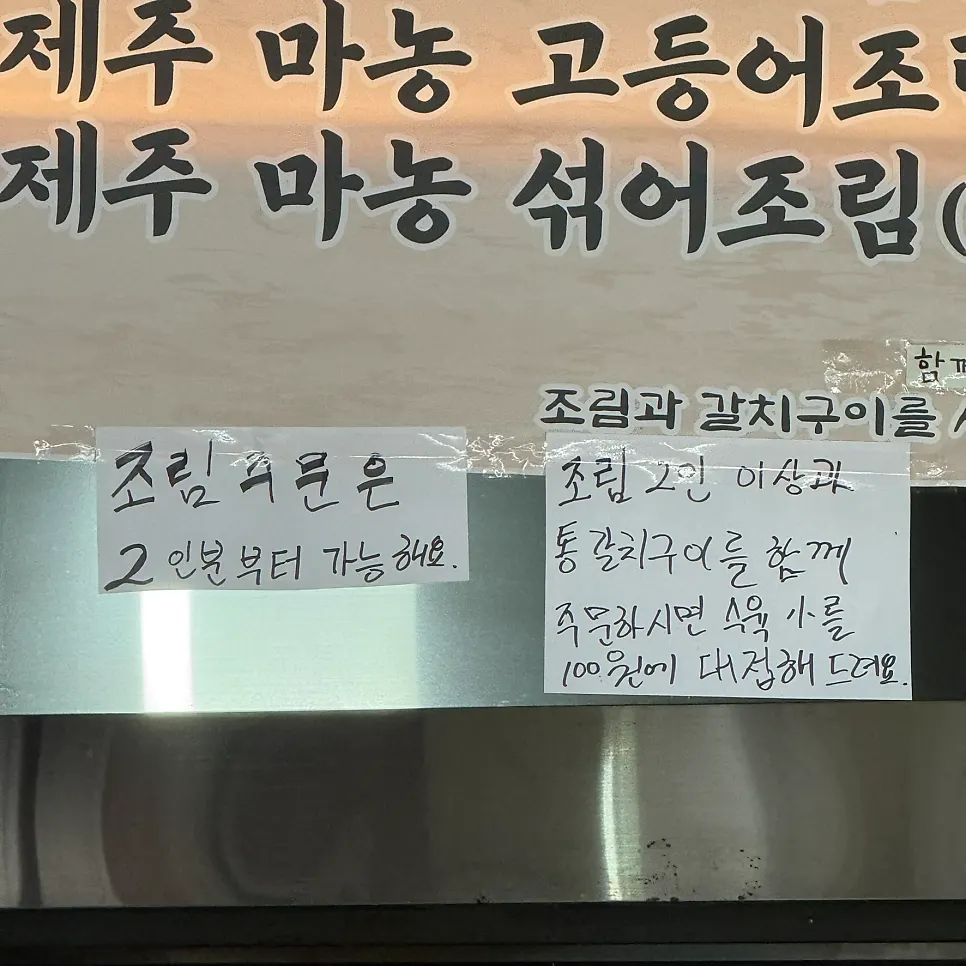 제주 마농 고등어조
제주 마농 섞어조림(
함께
조림과 갈치구이를
조림 주문은
2인분부터 가능해요.
조림 2인 이상과
통갈치구이를 함께
주문하시면 수육 小를
100원에 대접해 드려요.